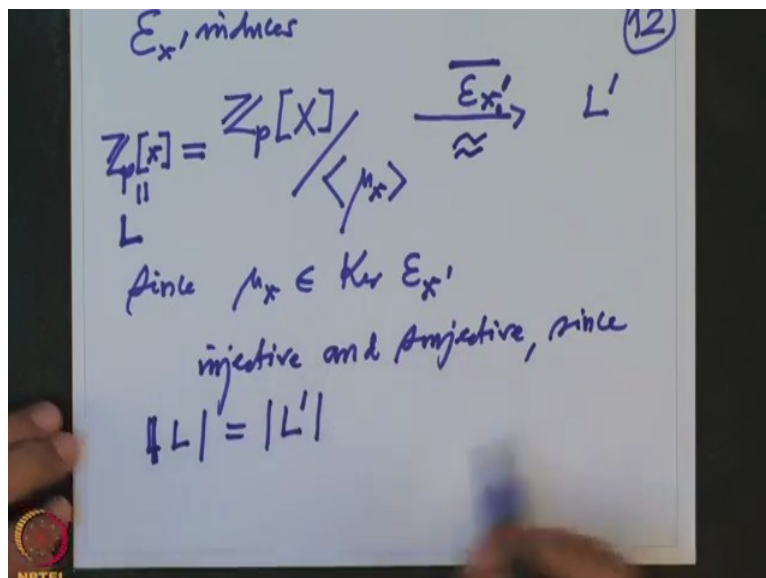 ε_x, induces
(12)
ℤ_p[x] = ℤ_p[X] / ⟨μ_x⟩ \overline{ε_{x'}} ⟶ ≈ L'
||
L
Since μ_x ∈ Ker ε_{x'}
injective and surjective, since
|L| = |L'|
NPTEL